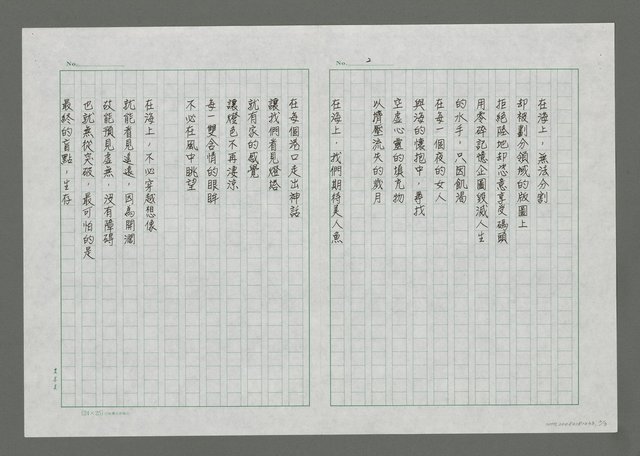 No. 2
在海上，無法分割
卻被劃分領域的版圖上
拒絕陸地卻恣意享受碼頭
用零碎記憶企圖毀滅人生
的水手，只因飢渴
在每一個夜的女人
與海的懷抱中，尋找
空虛心靈的填充物
以擠壓流失的歲月
在海上，我們期待美人魚
No.
在每個港口走出神話
讓我們看見燈塔
就有家的感覺
讓燈色不再淒涼
每一雙含情的眼眸
不必在風中眺望
在海上，不必穿越想像
就能看見遙遠，因為開濶
故能預見虛無，沒有障碍
也就無從突破，最可怕的是
最終的盲點，生存
(24×25)